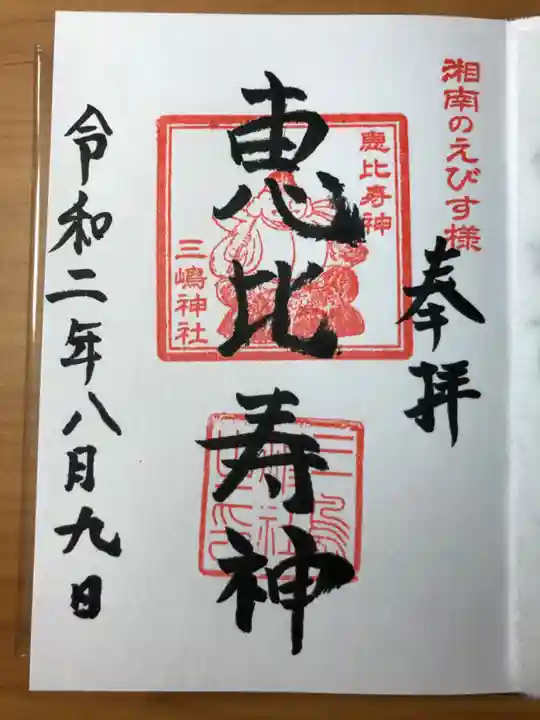 湘南のえびす様
奉拝
恵比寿神
恵比寿神
三嶋神社
令和二年八月九日